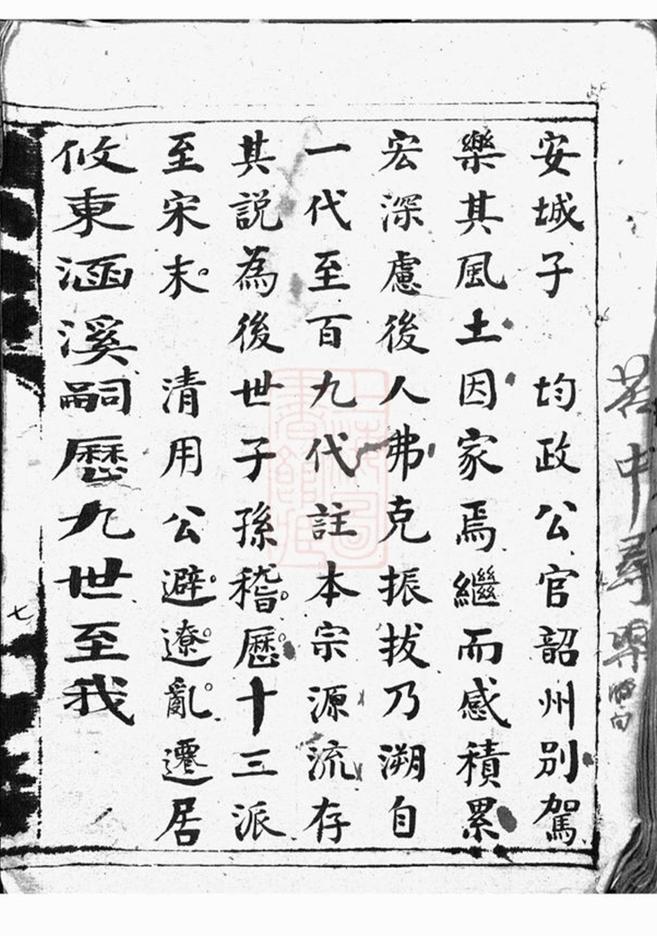 安城子　均政公官韶州別駕
樂其風土因家焉繼而感積累
宏深慮後人弗克振拔乃溯自
一代至百九代註本宗源流存
其説為後世子孫稽歷十三派
至宋末　清用公避遼亂遷居
攸東涵溪嗣歷九世至我
苦中尋樂
七
上海圖書館藏